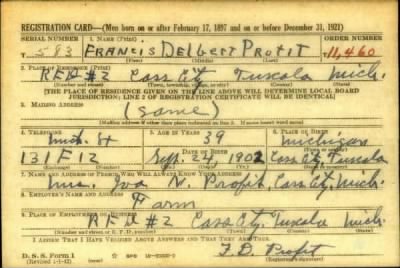 REGISTRATION CARD—(Men born on or after February 17, 1897 and on or before December 31, 1921)
SERIAL NUMBER 1. NAME (Print) ORDER NUMBER
T 583 FRANCIS DELBERT PROFIT 11,460
(First) (Middle) (Last)
2. PLACE OF RESIDENCE (Print)
RFD #2 Cass City Tuscola Mich.
(Number and street) (Town, township, village, or city) (County) (State)
[THE PLACE OF RESIDENCE GIVEN ON THE LINE ABOVE WILL DETERMINE LOCAL BOARD
JURISDICTION; LINE 2 OF REGISTRATION CERTIFICATE WILL BE IDENTICAL]
3. MAILING ADDRESS
Same
[Mailing address if other than place indicated on line 2. If same insert word same]
4. TELEPHONE 5. AGE IN YEARS 6. PLACE OF BIRTH
39 Michigan
DATE OF BIRTH
131 F 12 Sept. 24, 1902 Cass City, Tuscola
7. NAME AND ADDRESS OF PERSON WHO WILL ALWAYS KNOW YOUR ADDRESS
Mrs. Iva N. Profit, Cass City, Mich.
8. EMPLOYER'S NAME AND ADDRESS
Farm
9. PLACE OF EMPLOYMENT OR BUSINESS
RFD #2 Cass City, Tuscola Mich.
(Number and street or R. F. D. number) (Town) (County) (State)
I AFFIRM THAT I HAVE VERIFIED ABOVE ANSWERS AND THAT THEY ARE TRUE.
D. S. S. Form 1 F. D. Profit
(Revised 1-1-42) GPO